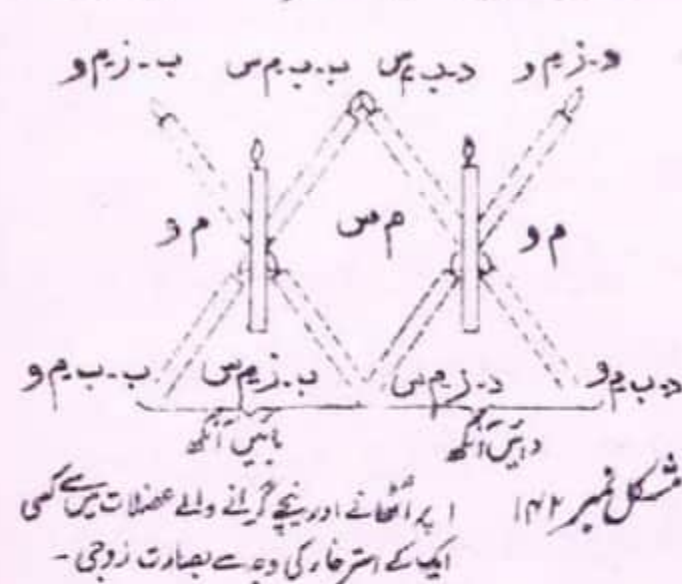 د۔زیم و د۔ب یم س ب۔ب یم س ب۔زیم و
م و م س م و
د۔ب یم و د۔زیم س ب۔زیم س ب۔ب یم و
دائیں آنکھ بائیں آنکھ
شکل نمبر ۱۴۲ اوپر اُٹھانے اور نیچے گرانے والے عضلات میں سے کسی
ایک کے استرخار کی وجہ سے بصارت زوجی ۔